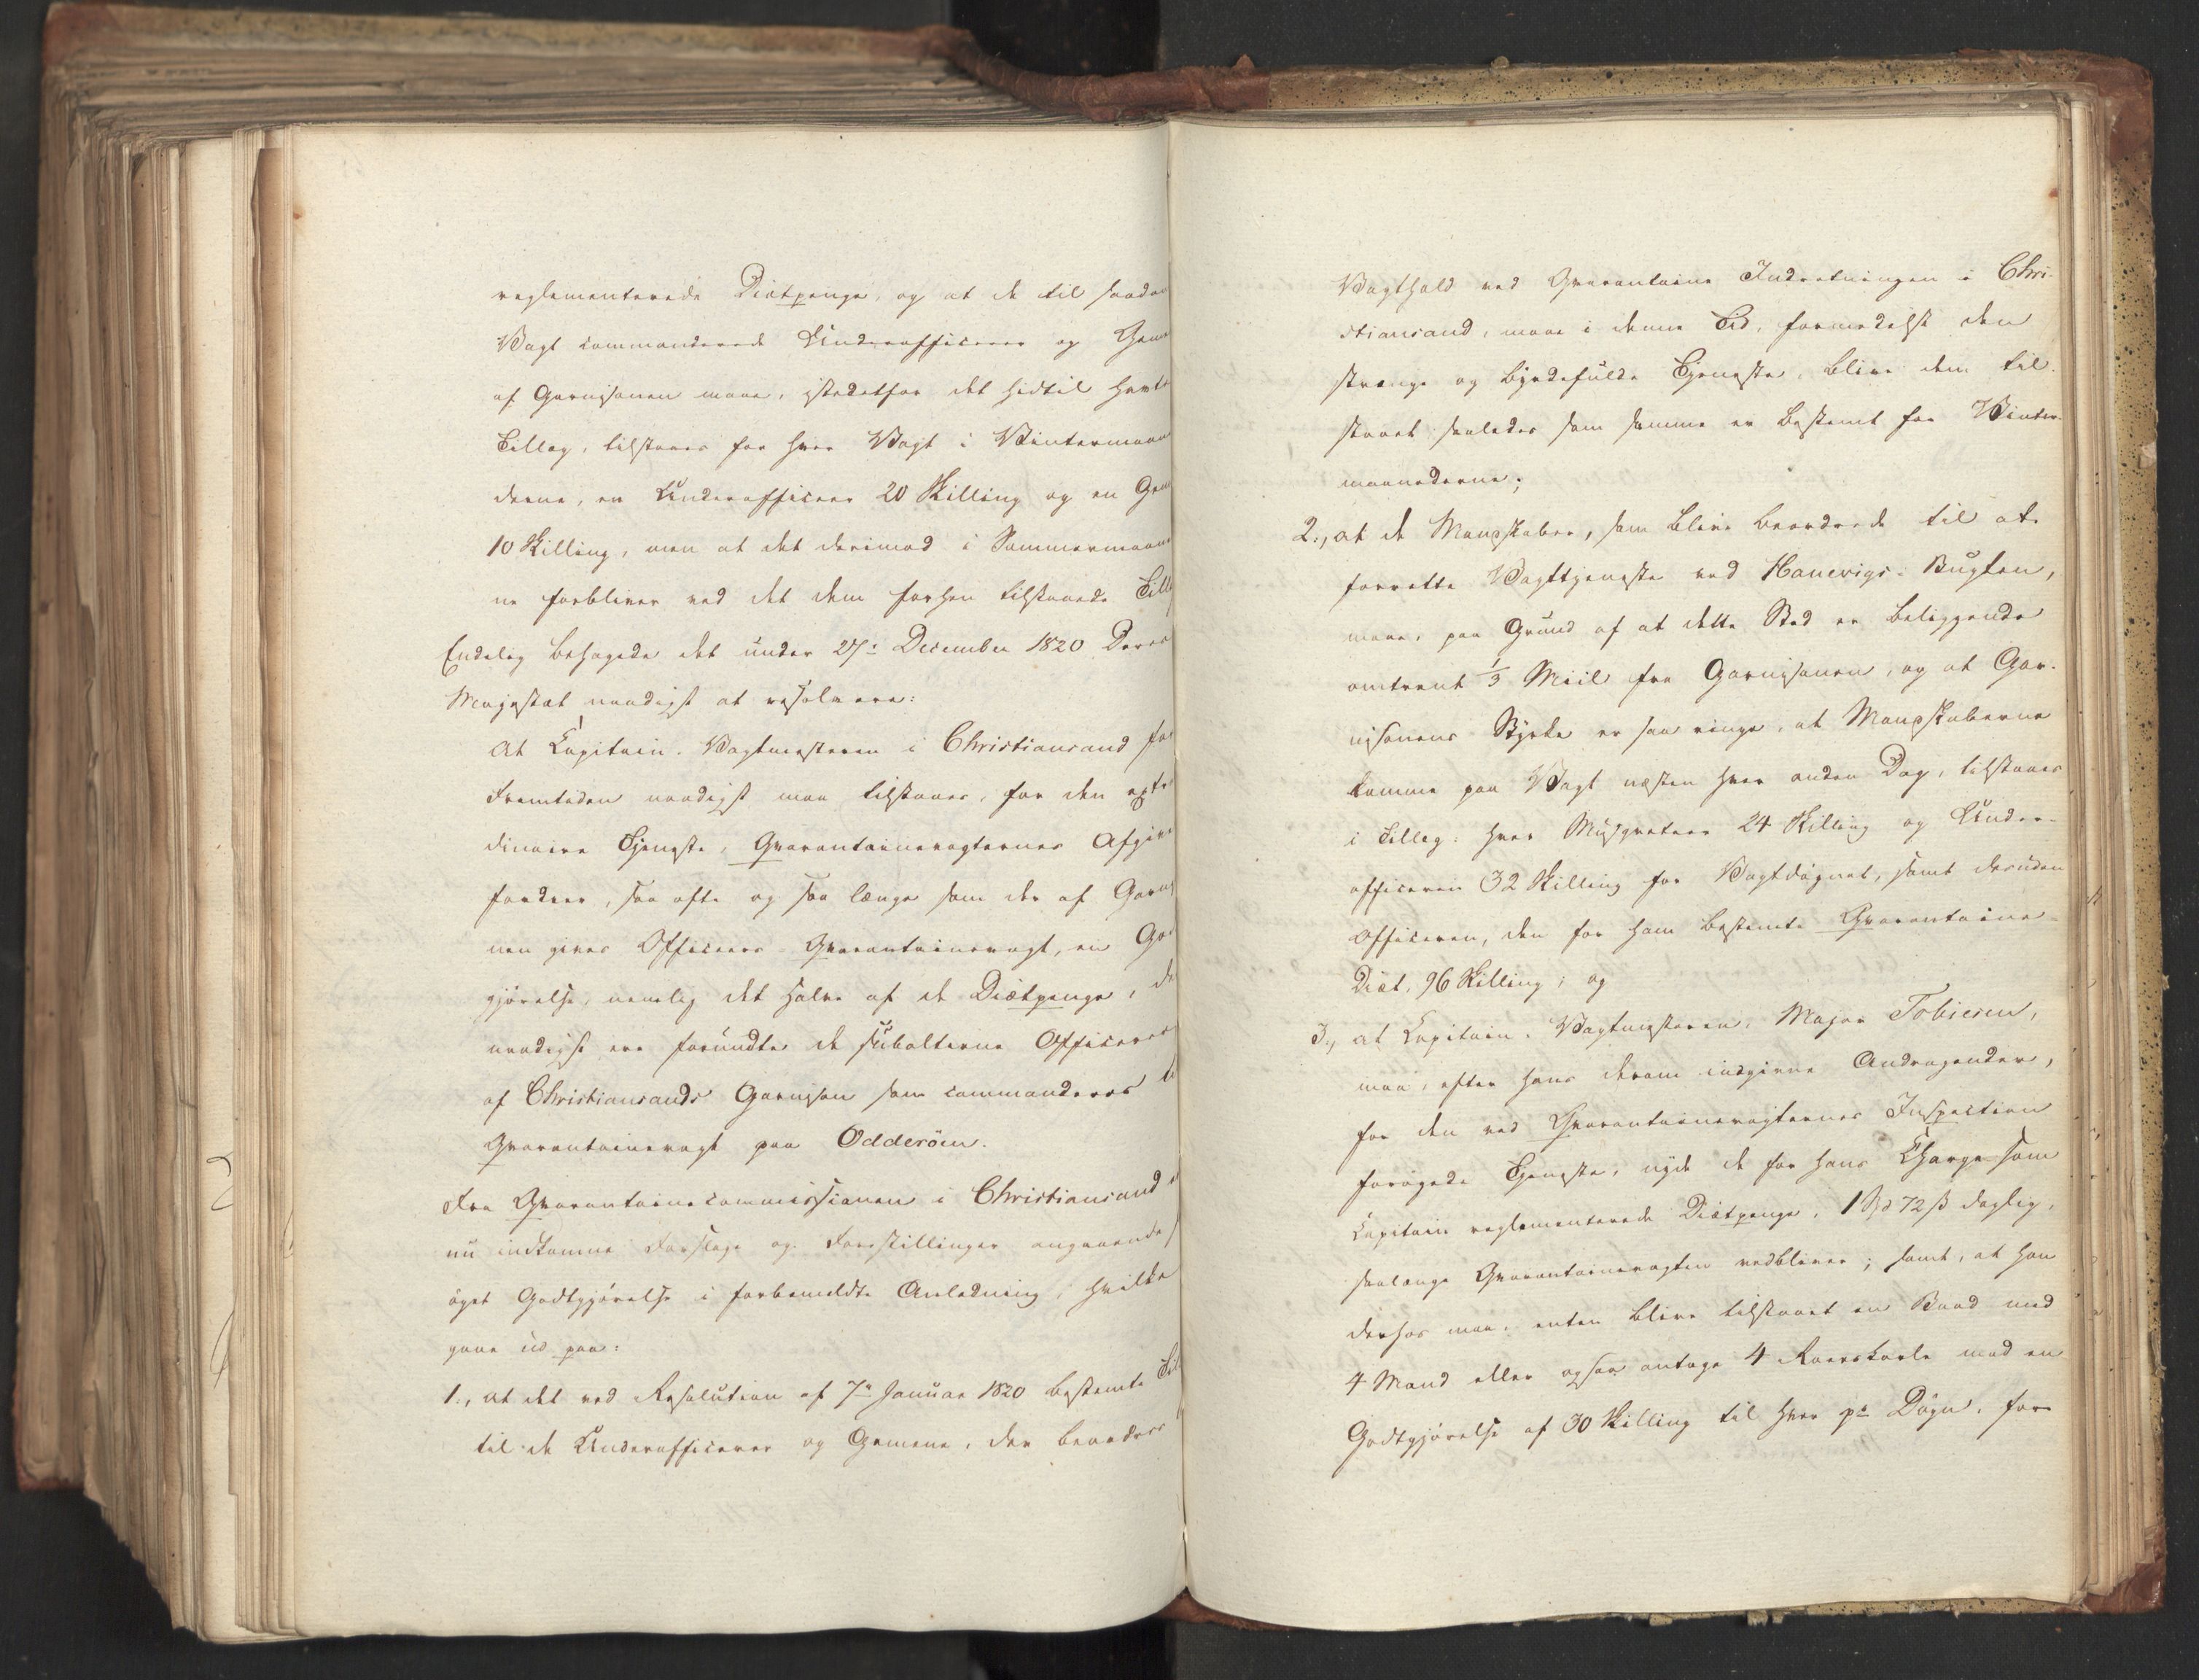 reglementerede Diætpenge, og at de til saadan
Vagt commanderede Underofficerer og Geme
af Garnisonen maae, istedetfor det hidtil havte
Tillæg, tilstaaes for hver Vagt i Vintermaane
derne, en Underofficeer 20 Skilling og en Gem
10 Skilling, men at det derimod i Sommermaane
ne forbliver ved det dem forhen tilstaaede Till
Endelig behagede det under 27: December 1820 Deres
Majestæt naadigst at resolvere:
At Capitain-Vagtmesteren i Christiansand for
Fremtiden naadigst maa tilstaaes, for den extr
dinaire Tjeneste, Qvarantainevagternes Afgive
fordrer, saa ofte og saa længe som der af Garni
nen gives Officeers Qvarantainevagt, en God
gjørelse, nemlig det halve af de Diætpenge, de
naadigst ere forundte de subalterne Officerer
af Christiansands Garnison som commanderes ti
Qvarantainevagt paa Odderøen.
Fra Qvarantainecommissionen i Christiansand e
nu indkomne Forslage og Forestillinger angaaende
øget Godtgjørelse i forbemeldte Anledning, hvilke
gaae ud paa:
1., at det ved Resolution af 7de Januar 1820 bestemte Til
til de Underofficerer og Gemene, der beordres
Vagthold ved Qvarantaine Indretningen i Chri-
stiansand, maae i denne Tid, formedelst den
strænge og byrdefulde Tjeneste, blive dem til-
staaet saaledes som samme er bestemt for Vinter-
maanederne;
2., at de Mandskaber, som blive beordrede til at
forrette Vagttjeneste ved Hanevigs-Bugten,
maae, paa Grund af at dette Sted er beliggende
omtrent 1/3 Miil fra Garnisonen, og at Gar-
nisonens Styrke er saa ringe, at Mandskaberne
komme paa Vagt næsten hver anden Dag, tilstaaes
i Tillæg: hver Musqveteer 24 Skilling og Under-
officeren 32 Skilling for Vagtdøgnet, samt desuden
Officeren, den for ham bestemte Qvarantaine-
Diæt, 96 Skilling; og
3., at Capitain-Vagtmesteren, Major Tobiesen,
maa, efter hans derom indgivne Andragender,
for den ved Qvarantainevagternes Inspection
forøgede Tjeneste, nyde de for hans Charge som
Capitain reglementerede Diætpenge, 1 Spd 72 ß daglig,
saalænge Qvarantainevagten vedbliver; samt, at han
derhos maa, enten blive tilstaaet en Baad med
4 Mand eller ogsaa antage 4 Roerskarle mod en
Godtgjørelse af 30 Skilling til hver pr Døgn, for